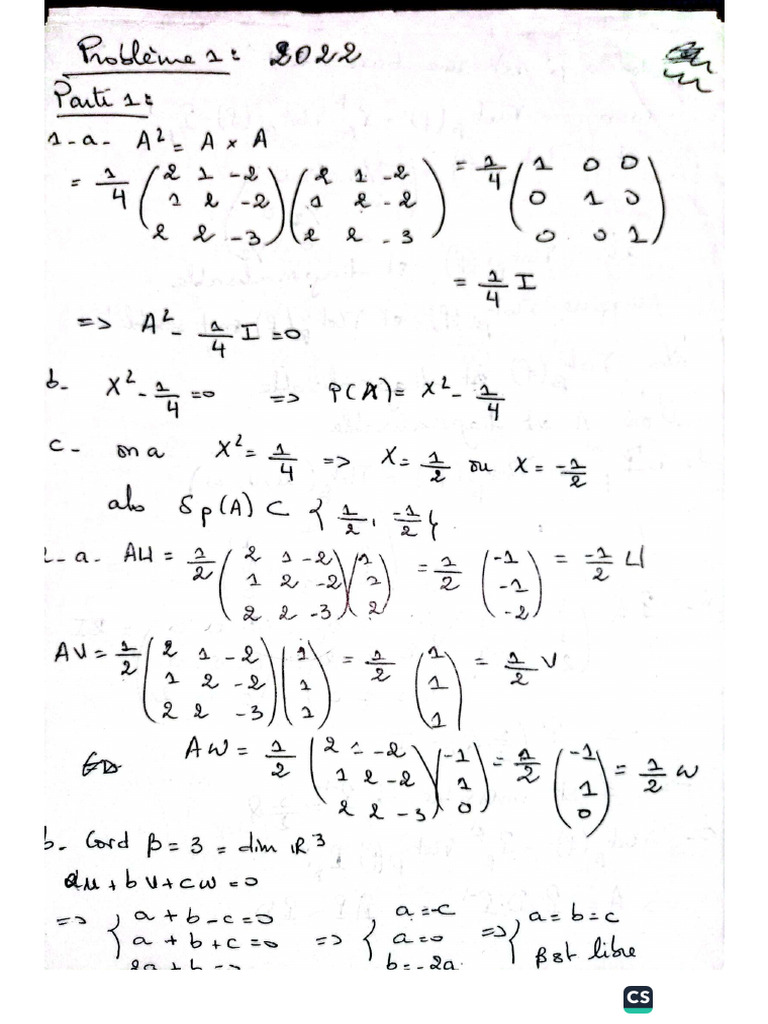 Problème 1 : 2022
Parti 1 :
1-a- A² = A × A
= 1/4 (2 1 -2 ; 1 2 -2 ; 2 2 -3) (2 1 -2 ; 1 2 -2 ; 2 2 -3) = 1/4 (1 0 0 ; 0 1 0 ; 0 0 1)
= 1/4 I
=> A² - 1/4 I = 0
b- X² - 1/4 = 0 => P(X) = X² - 1/4
c- on a X² = 1/4 => X = 1/2 ou X = -1/2
alo Sp(A) ⊂ {1/2, -1/2}
2-a- AU = 1/2 (2 1 -2 ; 1 2 -2 ; 2 2 -3) (1 ; 1 ; 2) = 1/2 (-1 ; -1 ; -2) = -1/2 U
AV = 1/2 (2 1 -2 ; 1 2 -2 ; 2 2 -3) (1 ; 1 ; 1) = 1/2 (1 ; 1 ; 1) = 1/2 V
AW = 1/2 (2 1 -2 ; 1 2 -2 ; 2 2 -3) (-1 ; 1 ; 0) = 1/2 (-1 ; 1 ; 0) = 1/2 W
b- Card β = 3 = dim ℝ³
au + bv + cw = 0
=> { a + b - c = 0 ; a + b + c = 0 ; 2a + b = 0 => { a = -c ; a = 0 ; b = -2a => { a = b = c ; β st libre
CS